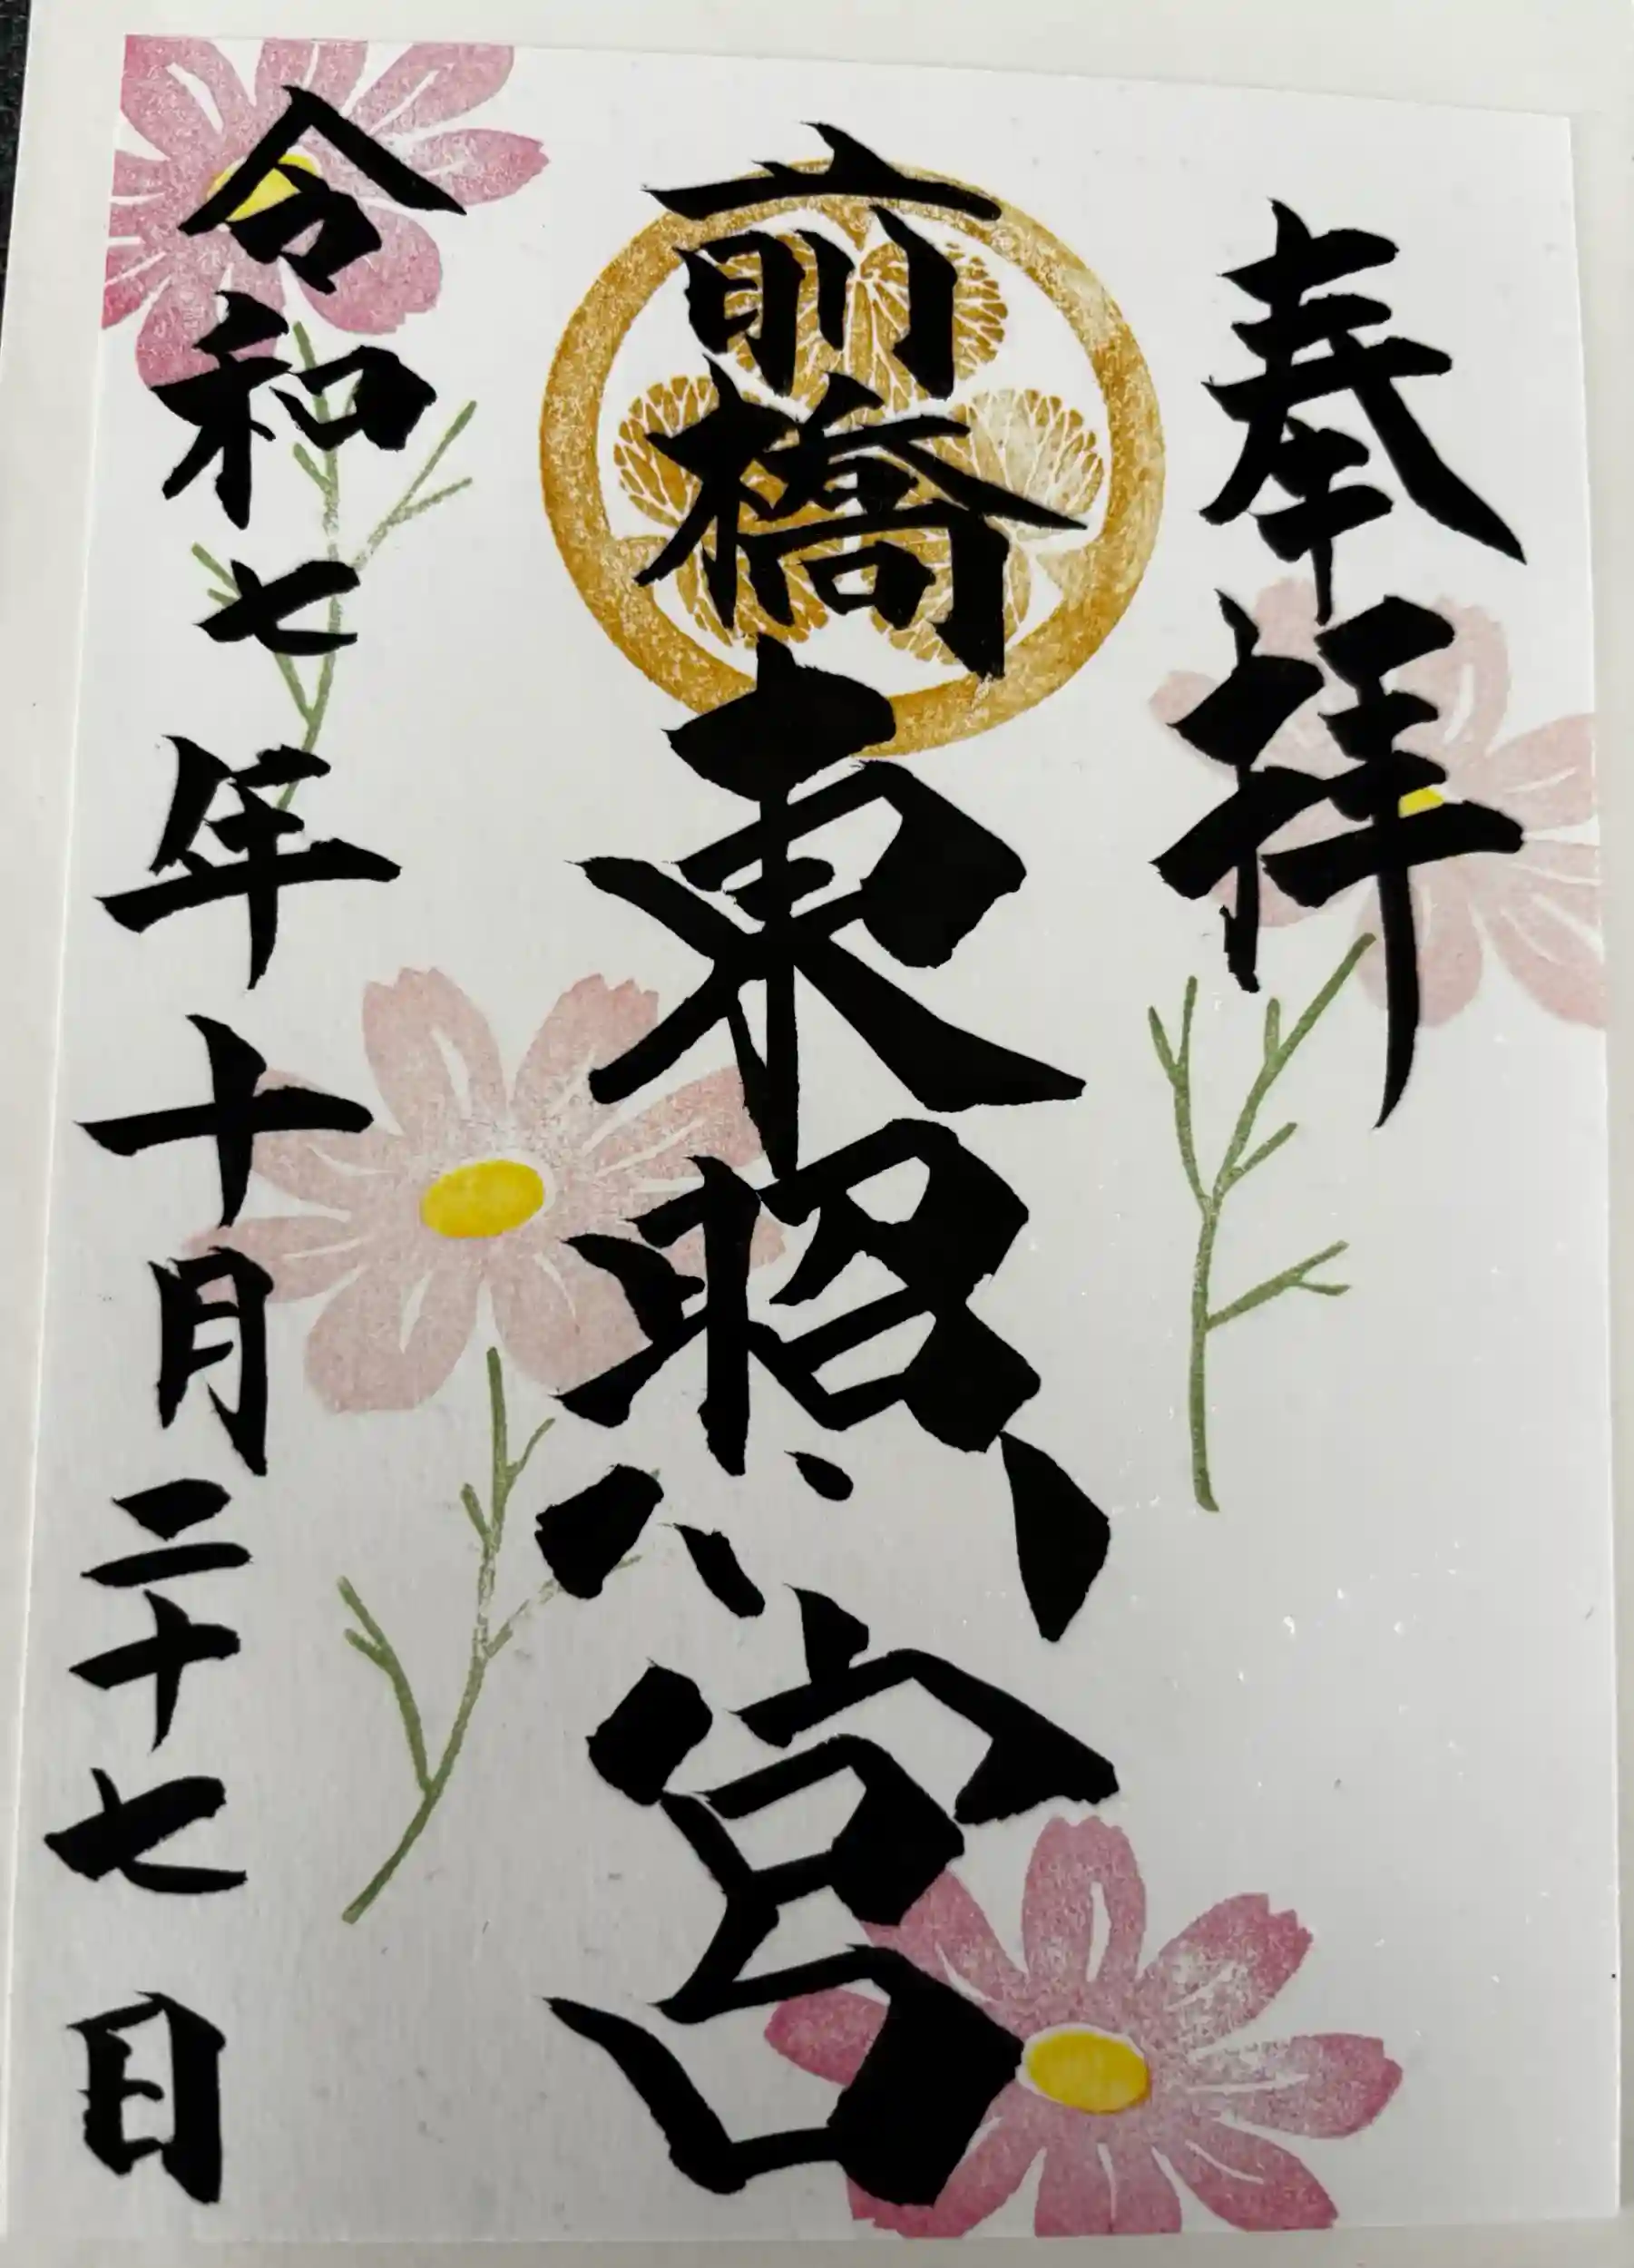 奉拝
前橋東照宮
令和七年十月二十七日